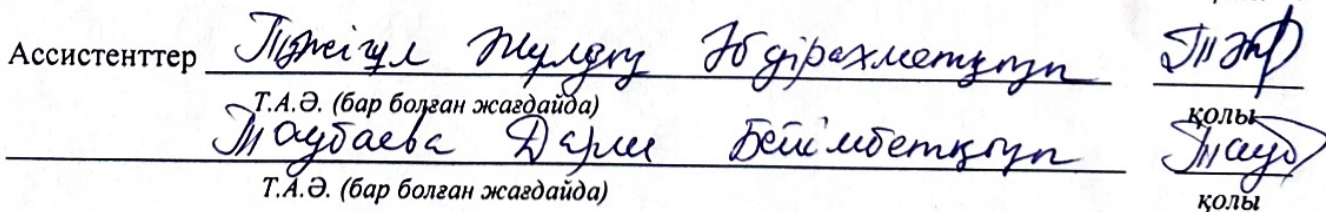 Ассистенттер Тәжігүл Жулдыз Әбдірахметқызы
Т.А.Ә. (бар болған жағдайда) қолы
Таубаева Дария Бейімбетқызы Тауб
Т.А.Ә. (бар болған жағдайда) қолы